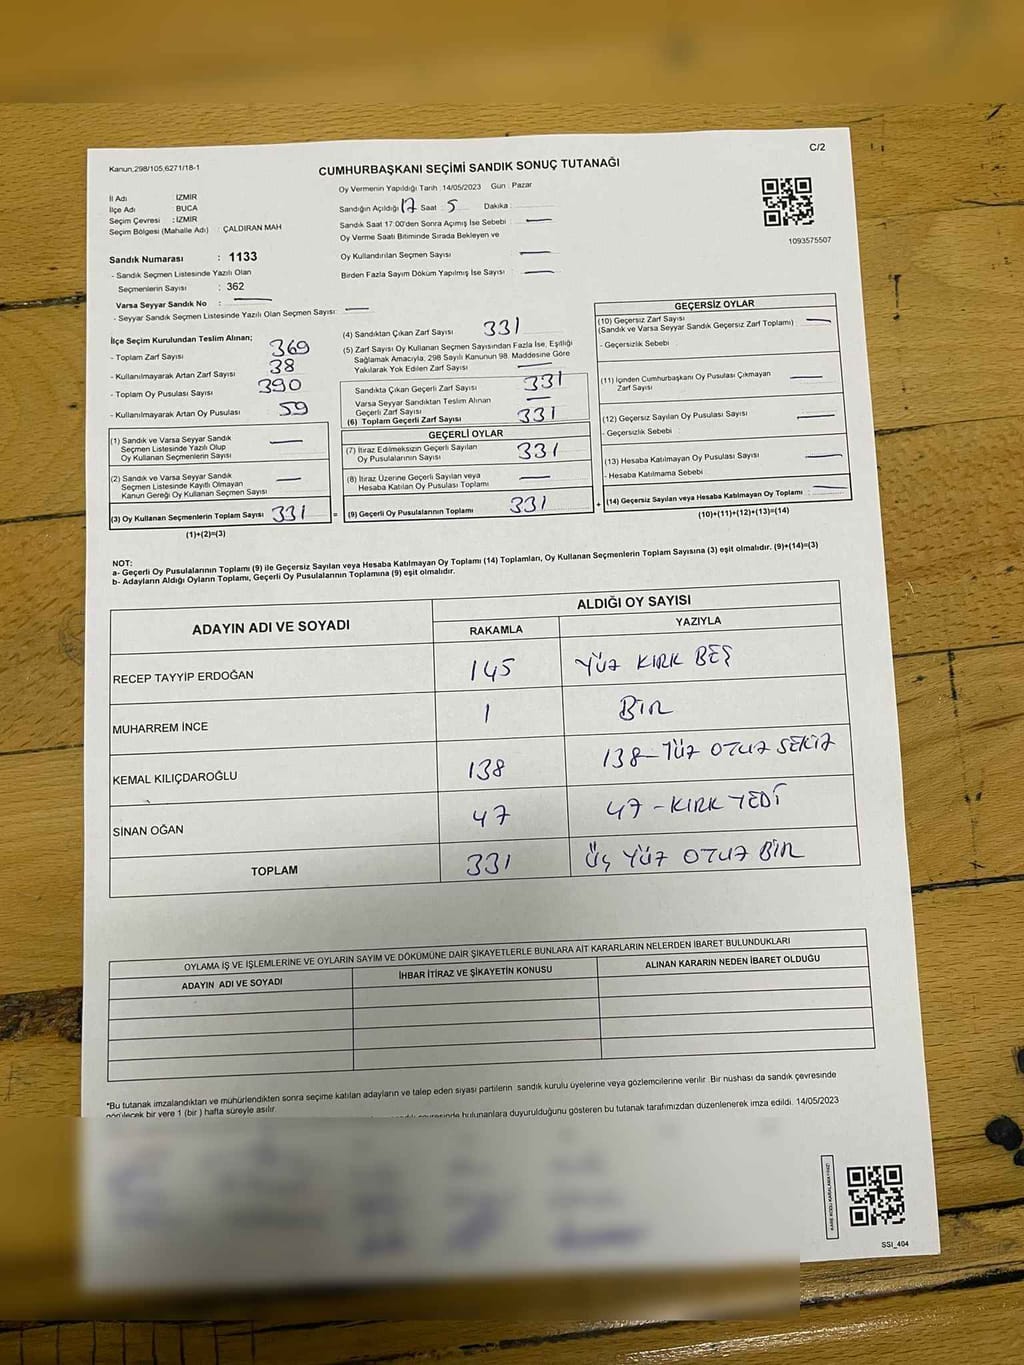 Kanun,298/105,6271/18-1
C/2
CUMHURBAŞKANI SEÇİMİ SANDIK SONUÇ TUTANAĞI
Oy Vermenin Yapıldığı Tarih :14/05/2023 Gün : Pazar
İl Adı : İZMİR
İlçe Adı : BUCA
Seçim Çevresi : İZMİR
Seçim Bölgesi (Mahalle Adı) : ÇALDIRAN MAH
Sandığın Açıldığı 17 Saat 5 Dakika :
Sandık Saat 17:00'den Sonra Açımış İse Sebebi :
Oy Verme Saati Bitiminde Sırada Bekleyen ve
Oy Kullandırılan Seçmen Sayısı :
Birden Fazla Sayım Döküm Yapılmış İse Sayısı :
1093575507
Sandık Numarası : 1133
- Sandık Seçmen Listesinde Yazılı Olan
Seçmenlerin Sayısı : 362
Varsa Seyyar Sandık No :
- Seyyar Sandık Seçmen Listesinde Yazılı Olan Seçmen Sayısı:
İlçe Seçim Kurulundan Teslim Alınan;
- Toplam Zarf Sayısı 369
- Kullanılmayarak Artan Zarf Sayısı 38
- Toplam Oy Pusulası Sayısı 390
- Kullanılmayarak Artan Oy Pusulası 59
(1) Sandık ve Varsa Seyyar Sandık
Seçmen Listesinde Yazılı Olup
Oy Kullanan Seçmenlerin Sayısı
(2) Sandık ve Varsa Seyyar Sandık
Seçmen Listesinde Kayıtlı Olmayan
Kanun Gereği Oy Kullanan Seçmen Sayısı
(3) Oy Kullanan Seçmenlerin Toplam Sayısı 331 =
(1)+(2)=(3)
(4) Sandıktan Çıkan Zarf Sayısı 331
(5) Zarf Sayısı Oy Kullanan Seçmen Sayısından Fazla İse, Eşitliği
Sağlamak Amacıyla, 298 Sayılı Kanunun 98. Maddesine Göre
Yakılarak Yok Edilen Zarf Sayısı
Sandıkta Çıkan Geçerli Zarf Sayısı 331
Varsa Seyyar Sandıktan Teslim Alınan
Geçerli Zarf Sayısı
(6) Toplam Geçerli Zarf Sayısı 331
GEÇERLİ OYLAR
(7) İtiraz Edilmeksizin Geçerli Sayılan
Oy Pusulalarının Sayısı 331
(8) İtiraz Üzerine Geçerli Sayılan veya
Hesaba Katılan Oy Pusulası Toplamı
(9) Geçerli Oy Pusulalarının Toplamı 331 +
GEÇERSİZ OYLAR
(10) Geçersiz Zarf Sayısı
(Sandık ve Varsa Seyyar Sandık Geçersiz Zarf Toplamı)
- Geçersizlik Sebebi :
(11) İçinden Cumhurbaşkanı Oy Pusulası Çıkmayan
Zarf Sayısı
(12) Geçersiz Sayılan Oy Pusulası Sayısı
- Geçersizlik Sebebi :
(13) Hesaba Katılmayan Oy Pusulası Sayısı
- Hesaba Katılmama Sebebi :
(14) Geçersiz Sayılan veya Hesaba Katılmayan Oy Toplamı
(10)+(11)+(12)+(13)=(14)
NOT:
a- Geçerli Oy Pusulalarının Toplamı (9) ile Geçersiz Sayılan veya Hesaba Katılmayan Oy Toplamı (14) Toplamları, Oy Kullanan Seçmenlerin Toplam Sayısına (3) eşit olmalıdır. (9)+(14)=(3)
b- Adayların Aldığı Oyların Toplamı, Geçerli Oy Pusulalarının Toplamına (9) eşit olmalıdır.
ADAYIN ADI VE SOYADI
ALDIĞI OY SAYISI
RAKAMLA YAZIYLA
RECEP TAYYİP ERDOĞAN 145 YÜZ KIRK BEŞ
MUHARREM İNCE 1 BİR
KEMAL KILIÇDAROĞLU 138 138-YÜZ OTUZ SEKİZ
SİNAN OĞAN 47 47-KIRK YEDİ
TOPLAM 331 ÜÇ YÜZ OTUZ BİR
OYLAMA İŞ VE İŞLEMLERİNE VE OYLARIN SAYIM VE DÖKÜMÜNE DAİR ŞİKAYETLERLE BUNLARA AİT KARARLARIN NELERDEN İBARET BULUNDUKLARI
ADAYIN ADI VE SOYADI İHBAR İTİRAZ VE ŞİKAYETİN KONUSU ALINAN KARARIN NEDEN İBARET OLDUĞU
*Bu tutanak imzalandıktan ve mühürlendikten sonra seçime katılan adayların ve talep eden siyasi partilerin sandık kurulu üyelerine veya gözlemcilerine verilir. Bir nüshası da sandık çevresinde
görülecek bir yere 1 (bir) hafta süreyle asılır.
bulunanlara duyurulduğunu gösteren bu tutanak tarafımızdan düzenlenerek imza edildi. 14/05/2023
KARE KODU KARALAMAYINIZ!
SSI_404